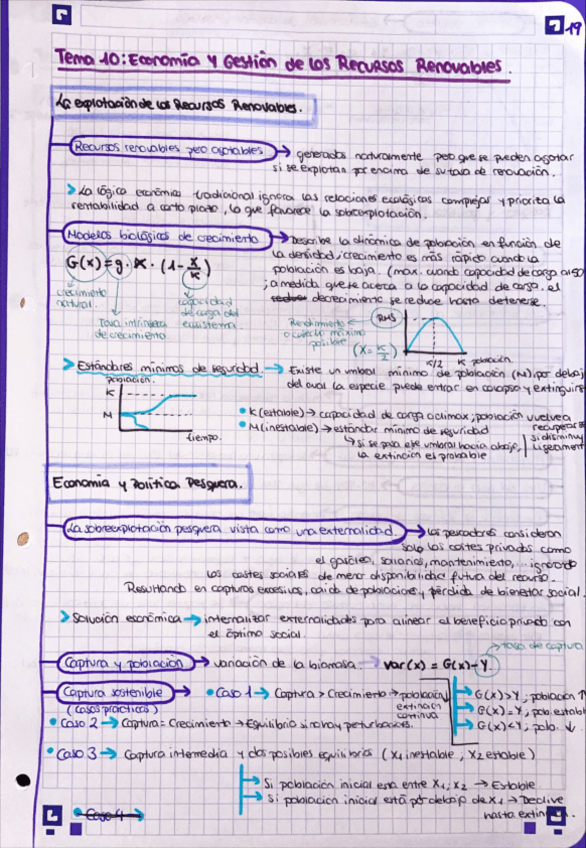 19
Tema 10: Economía y Gestión de los Recursos Renovables.
La explotación de los Recursos Renovables.
Recursos renovables pero agotables → generados naturalmente pero que se pueden agotar
si se explotan por encima de su tasa de renovación.
> La lógica económica tradicional ignora las relaciones ecológicas complejas y prioriza la
rentabilidad a corto plazo, lo que favorece la sobreexplotación.
Modelos biológicos de crecimiento → Describe la dinámica de población en función de
la densidad; crecimiento es más rápido cuando la
población es baja. (max. cuando capacidad de carga
; a medida que se acerca a la capacidad de carga. el
decrecimiento se reduce hasta detenerse.
G(x) = g · x · (1 - x/K)
crecimiento
natural.
Tasa intrínseca
de crecimiento
capacidad
de carga del
ecosistema.
Rendimiento
máximo
posible
(x = K/2)
RMS
K/2
K
población
> Estándares mínimos de seguridad. → Existe un umbral mínimo de población (M), por debajo
del cual la especie puede entrar en colapso y extinguirse
población.
K
M
tiempo.
• K (estable) → capacidad de carga o climax; población vuelve a
recuperarse
si disminuy
ligeramente
• M (inestable) → estándar mínimo de seguridad
↳ si se pasa ese umbral hacia abajo,
la extinción es probable
Economía y Política Pesquera.
La sobreexplotación pesquera vista como una externalidad → Los pescadores consideran
solo los costes privados como
el gasóleo, salarios, mantenimiento, ... ignorando
los costes sociales de menor disponibilidad futura del recurso.
Resultando en capturas excesivas, caída de poblaciones y pérdida de bienestar social.
> Solución económica → internalizar externalidades para alinear el beneficio privado con
el óptimo social.
Captura y población → variación de la biomasa: → var(x) = G(x) - Y
tasa de captura
Captura sostenible → • Caso 1 → Captura > Crecimiento → población
extinción
continua
(casos prácticos)
→ G(x) > Y; población ↑
→ G(x) = Y; pob. estable
→ G(x) < Y; pob. ↓
• Caso 2 → Captura = Crecimiento → Equilibrio si no hay perturbaciones.
• Caso 3 → Captura intermedia y dos posibles equilibrios (x1 inestable, x2 estable)
→ Si población inicial esta entre x1, x2 → Estable
→ Si población inicial está por debajo de x1 → Declive
hasta extinción.
• Caso 4 →